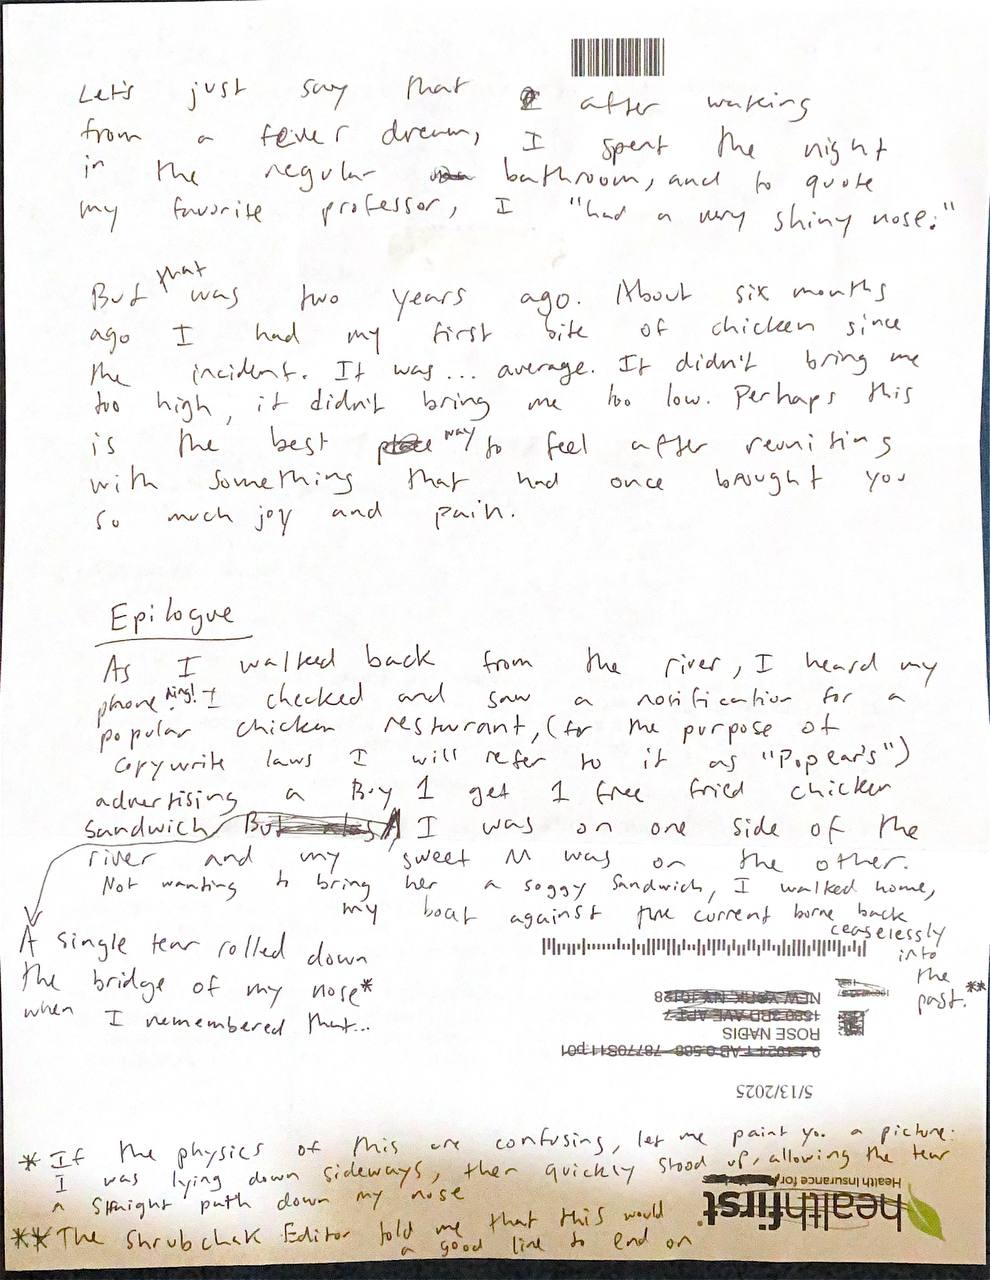 Let's just say that after waking
from a fever dream, I spent the night
in the regular bathroom, and to quote
my favorite professor, I "had a very shiny nose."
But that was two years ago. About six months
ago I had my first bite of chicken since
the incident. It was... average. It didn't bring me
too high, it didn't bring me too low. Perhaps this
is the best way to feel after reuniting
with something that had once brought you
so much joy and pain.
Epilogue
As I walked back from the river, I heard my
phone ring! I checked and saw a notification for a
popular chicken restaurant, (for the purpose of
copywrite laws I will refer to it as "Popear's")
advertising a Buy 1 get 1 free fried chicken
sandwich
A single tear rolled down
the bridge of my nose*
when I remembered that...
I was on one side of the
river and my sweet M was on the other.
Not wanting to bring her a soggy sandwich, I walked home,
my boat against the current borne back
ceaselessly
into
the
past.**
5/13/2025
ROSE NADIS
1580 3RD AVE APT 7
NEW YORK NY 10128
* If the physics of this are confusing, let me paint you a picture:
I was lying down sideways, then quickly stood up, allowing the tear
a straight path down my nose
** The Shrubchak Editor told me that this would
a good line to end on
healthfirst
Health Insurance for